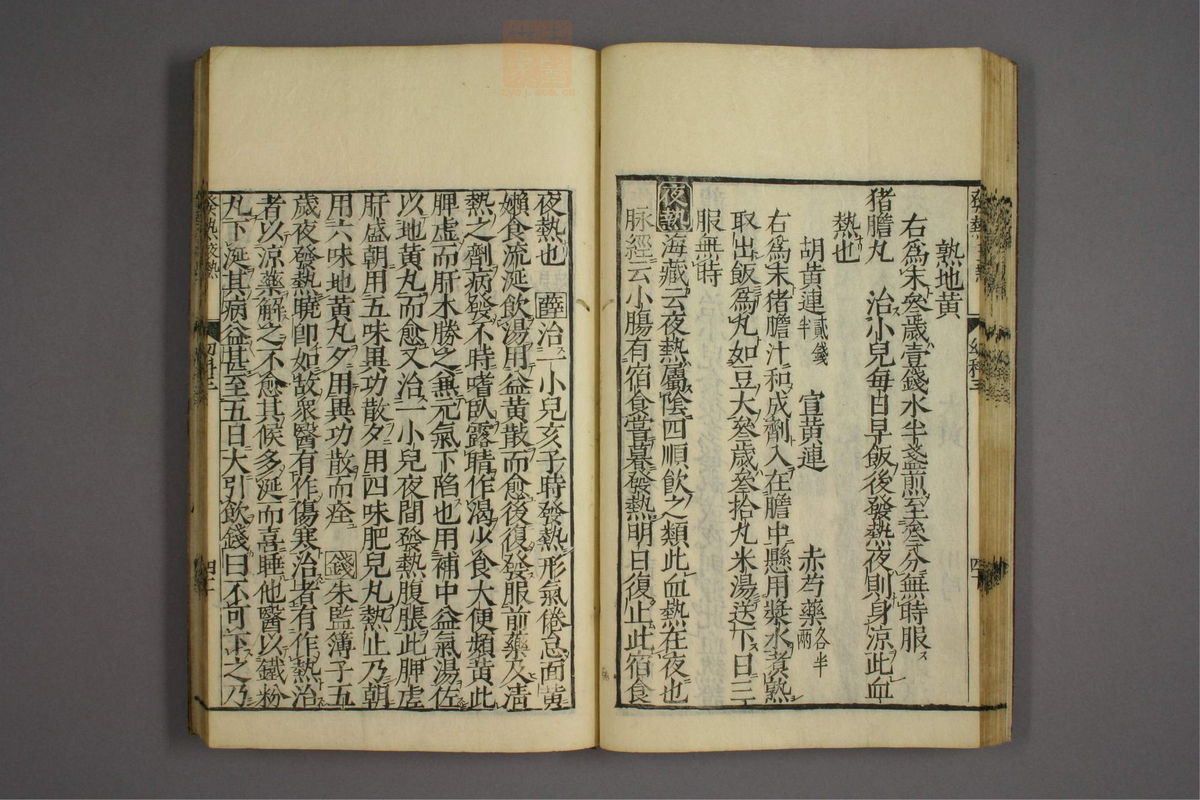 熟地黄
右爲末叄歲壹錢水半盞煎至叄分無時服
猪膽丸　治小兒每日早飯後發熱夜則身涼此血
熱也
胡黄連貳錢半　宣黄連　赤芍藥各半兩
右爲末猪膽汁和成劑入在膽中懸用漿水煮熟
取出飯爲丸如豆大叄歲叄拾丸米湯送下日三
服無時
夜熱海藏云夜熱屬陰四順飲之類此血熱在夜也
脉經云小腸有宿食嘗暮發熱明日復止此宿食
夜熱也　薛治一小兒亥子時發熱形氣倦怠面黄
嬾食流涎飲湯用益黄散而愈後復發服前藥及淸
熱之劑病發不時嗜臥露睛作渴少食大便頻黄此
脾虚而肝木勝之無元氣下陷也用補中益氣湯佐
以地黄丸而愈又治一小兒夜間發熱腹脹此脾虚
肝盛朝用五味異功散夕用四味肥兒丸熱止乃朝
用六味地黄丸夕用異功散而痊　錢朱監簿子五
歲夜發熱曉卽如故衆醫有作傷寒治者有作熱治
者以涼藥解之不愈其候多涎而喜睡他醫以鐵粉
丸下涎其病益甚至五日大引飲錢曰不可下之乃
發熱
幼科三
四十